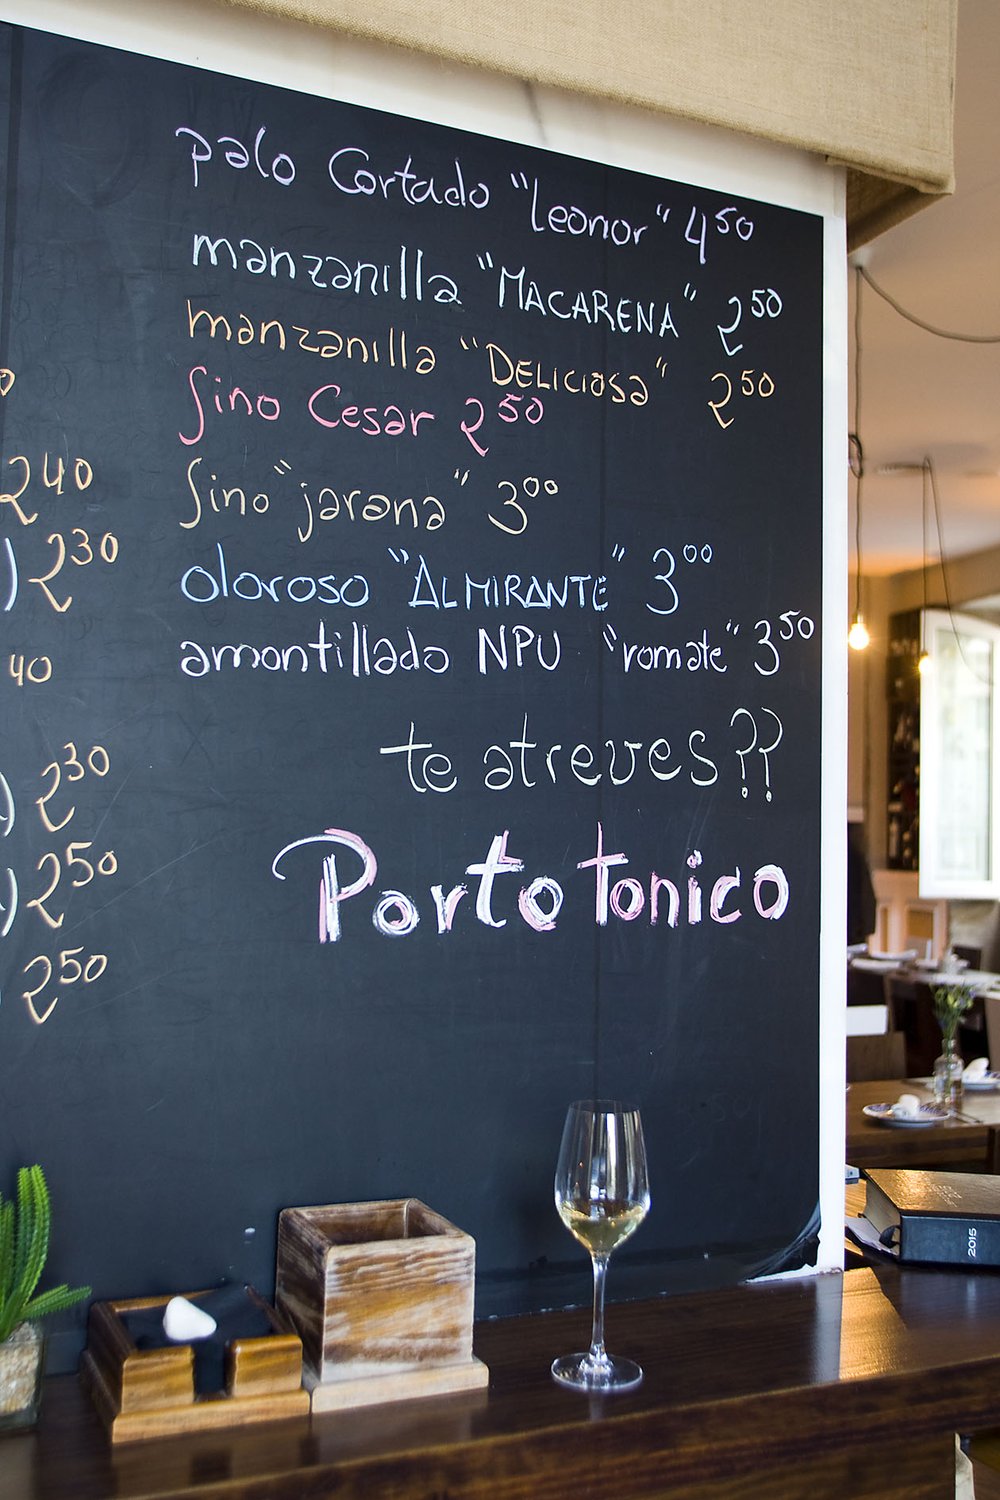 palo Cortado "Leonor" 4⁵⁰
manzanilla "MACARENA" 2⁵⁰
manzanilla "DELICIOSa" 2⁵⁰
fino Cesar 2⁵⁰
fino "jarana" 3⁰⁰
oloroso "ALMIRANTE" 3⁰⁰
amontillado NPU "romate" 3⁵⁰
te atreves??
Porto tonico
2⁴⁰
) 2³⁰
40
) 2³⁰
) 2⁵⁰
2⁵⁰
2015